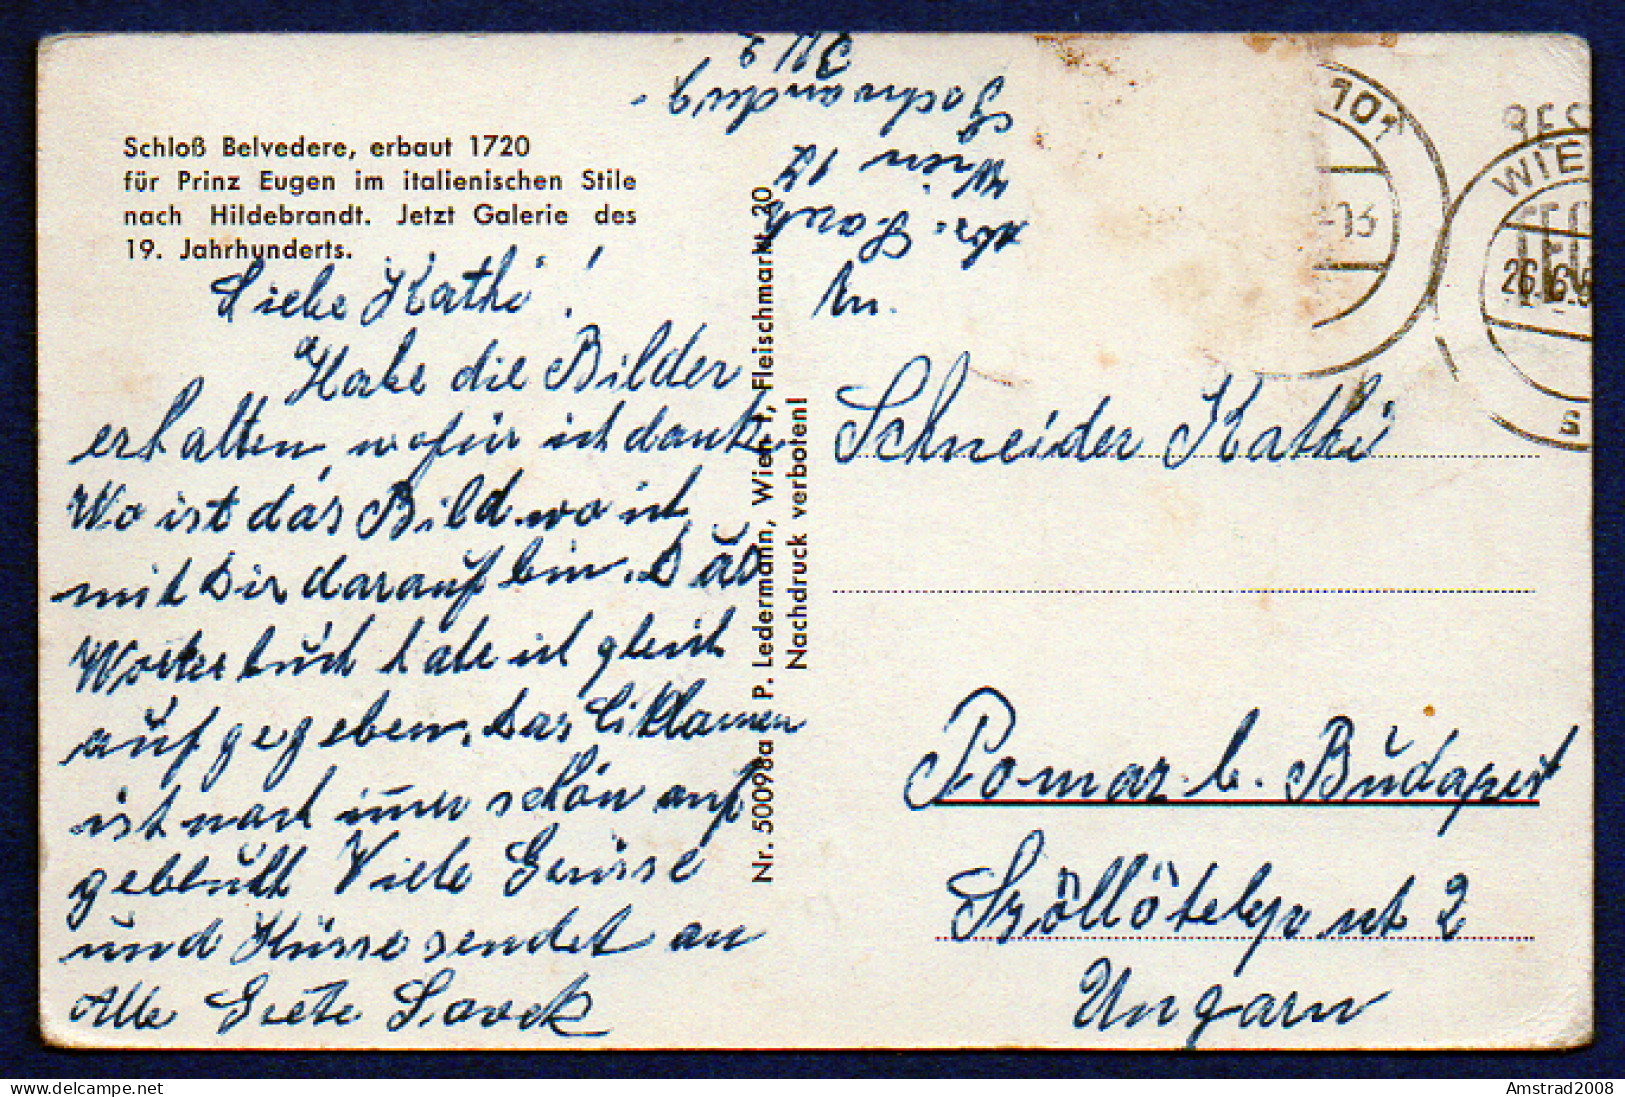 Schloß Belvedere, erbaut 1720
für Prinz Eugen im italienischen Stile
nach Hildebrandt. Jetzt Galerie des
19. Jahrhunderts.
Liebe Kathi!
Habe die Bilder
erhalten, wofür ich danke
Wo ist das Bild wo ich
mit Dir darauf bin. Das
Wörterbuch habe ich gleich
aufgegeben. Das Ciklamen
ist noch imer schön auf
geblüht Viele Grüsse
und Küsse sendet an
Alle Grete
Nr. 50098a P. Ledermann, Wien I, Fleischmarkt 20
Nachdruck verboten!
Wien 12
An.
Schneider Kathi
Pomaz b. Budapest
Szöllötelep ut 2
Ungarn
101
-13
BES
WIE
26.6.5
Amstrad2008